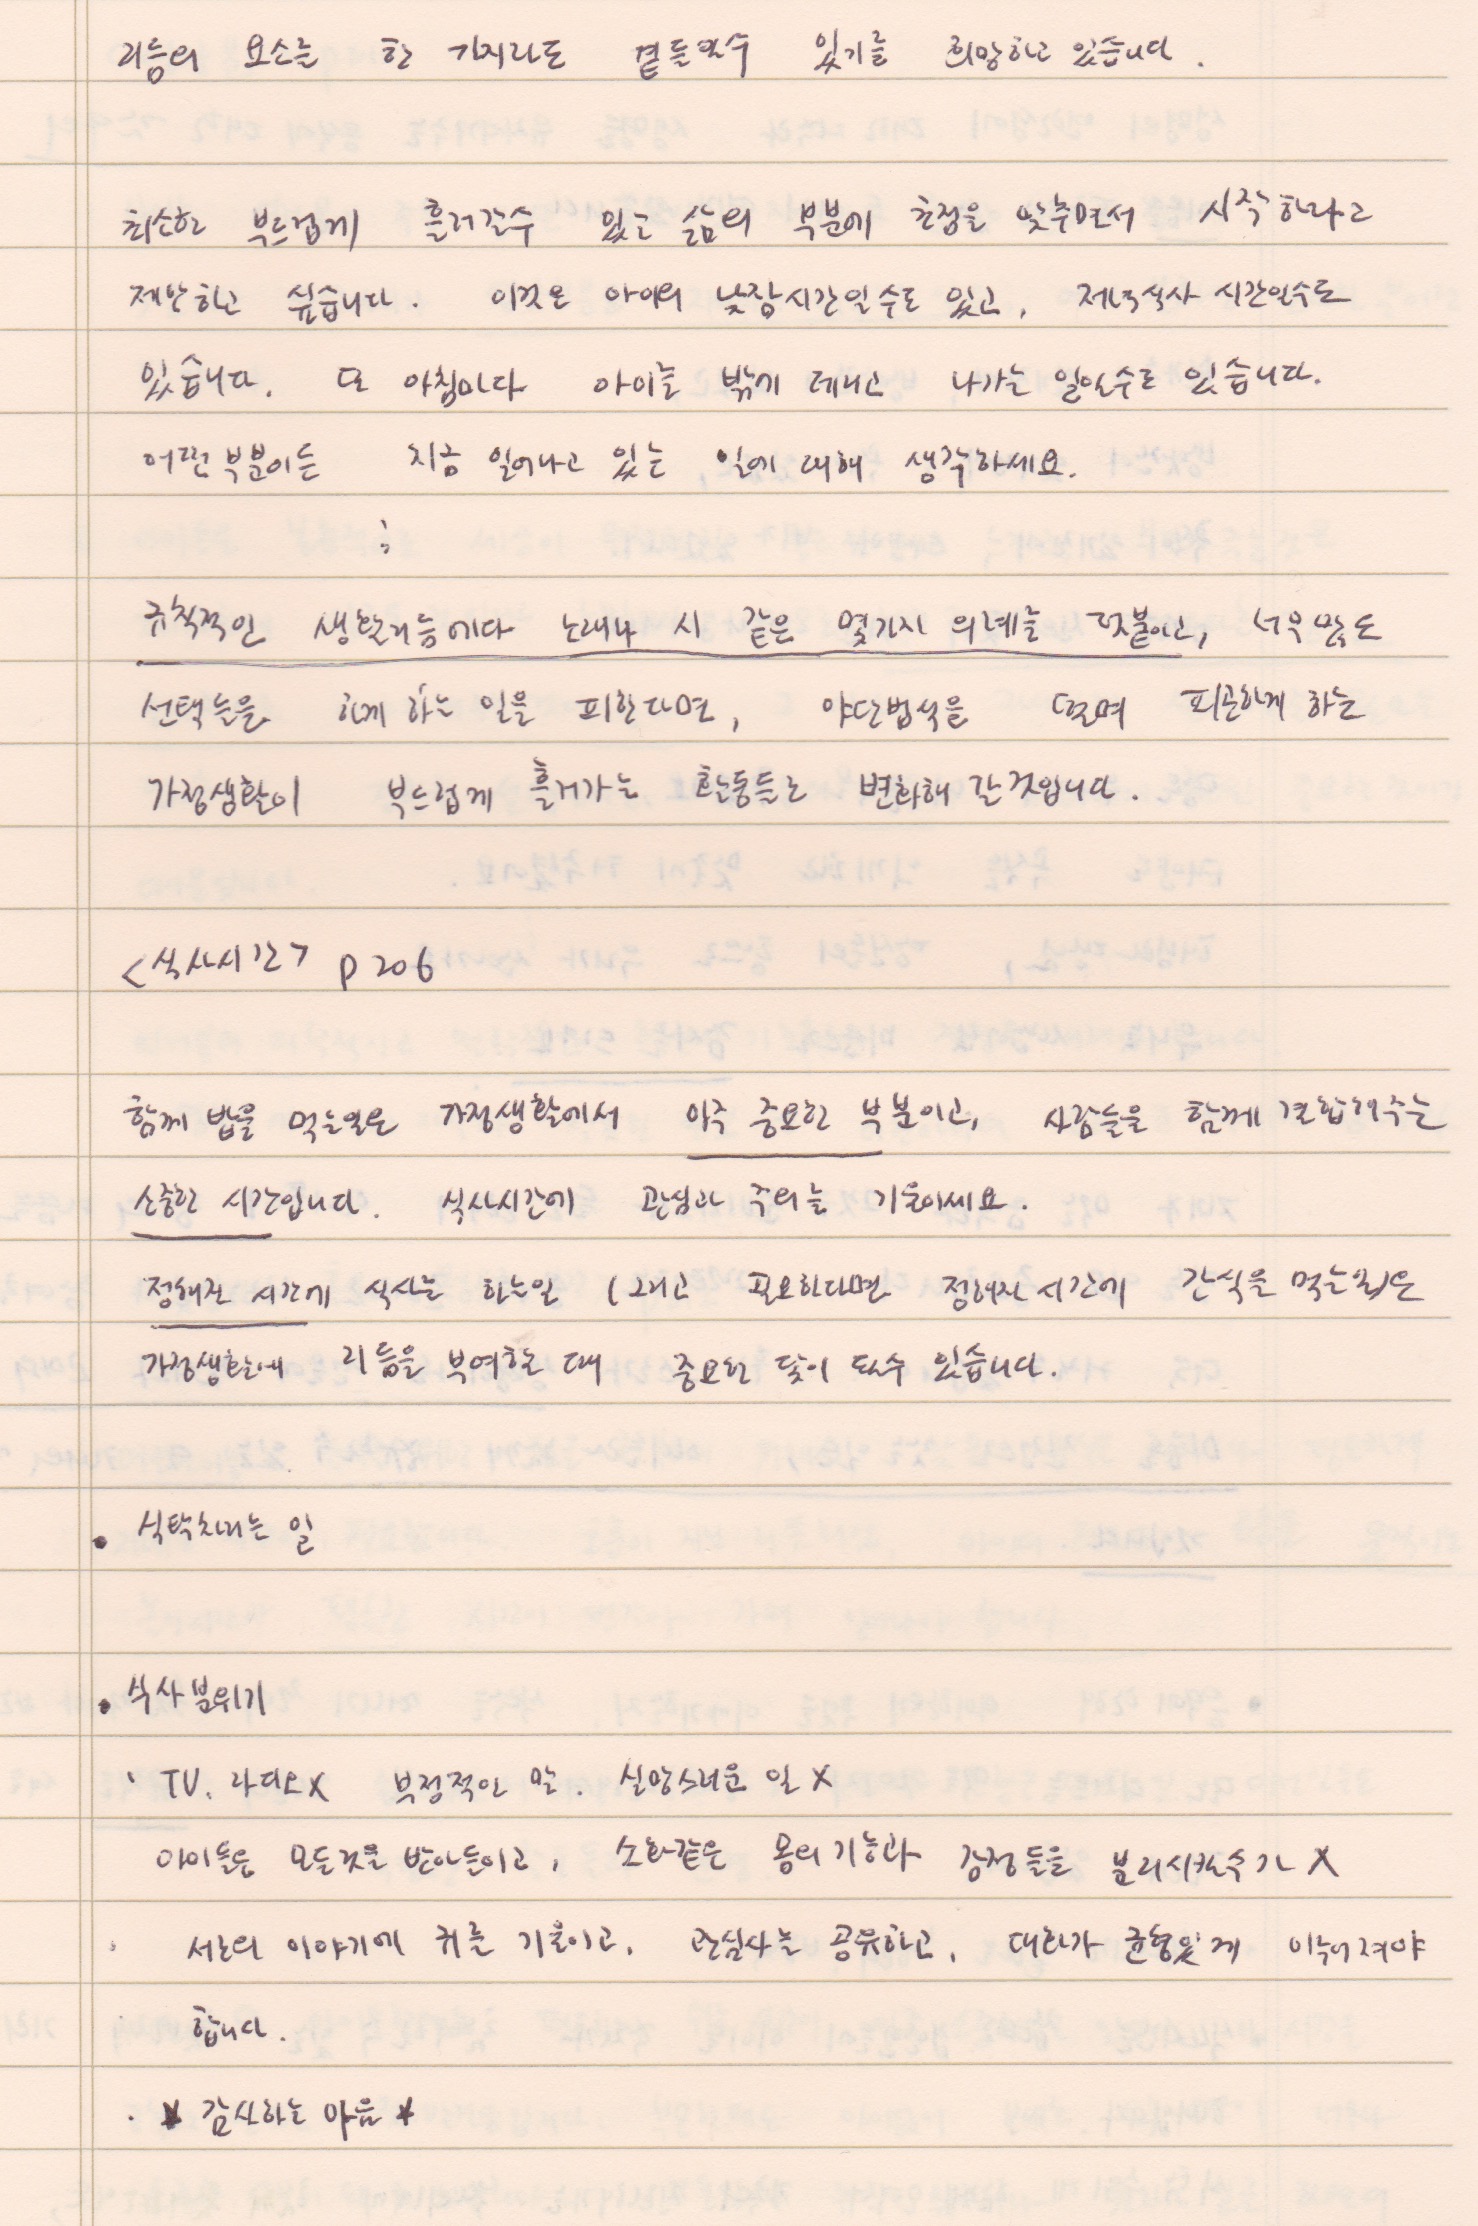 리듬의 요소를 한 가지라도 곁들일수 있기를 희망하고 있습니다.
최소한 부드럽게 흘러갈수 있는 삶의 부분에 초점을 맞추면서 시작하라고
제안하고 싶습니다. 이것은 아이의 낮잠시간일수도 있고, 저녁식사 시간일수도
있습니다. 또 아침마다 아이를 밖에 데리고 나가는 일일수도 있습니다.
어떤 부분이든 지금 일어나고 있는 일에 대해 생각하세요.
;
규칙적인 생활리듬에다 노래나 시 같은 몇가지 의례를 덧붙이고, 너무 많은
선택들을 하게 하는 일을 피한다면, 야단법석을 떨며 피곤하게 하는
가정생활이 부드럽게 흘러가는 활동들로 변화해 갈것입니다.
<식사시간> p206
함께 밥을 먹는일은 가정생활에서 아주 중요한 부분이고, 사람들을 함께 결합해주는
소중한 시간입니다. 식사시간에 관심과 주의를 기울이세요.
정해진 시간에 식사를 하는일 (그리고 필요하다면 정해진 시간에 간식을 먹는일)은
가정생활에 리듬을 부여할 때 중요한 닻이 될수 있습니다.
• 식탁차리는 일
• 식사 분위기
· TV. 라디오 X 부정적인 말. 실망스러운 일 X
아이들은 모든것을 받아들이고, 소화같은 몸의 기능과 감정들을 분리시킬수가 X
· 서로의 이야기에 귀를 기울이고, 관심사를 공유하고, 대화가 균형있게 이루어져야
합니다.
· ★ 감사하는 마음 ★